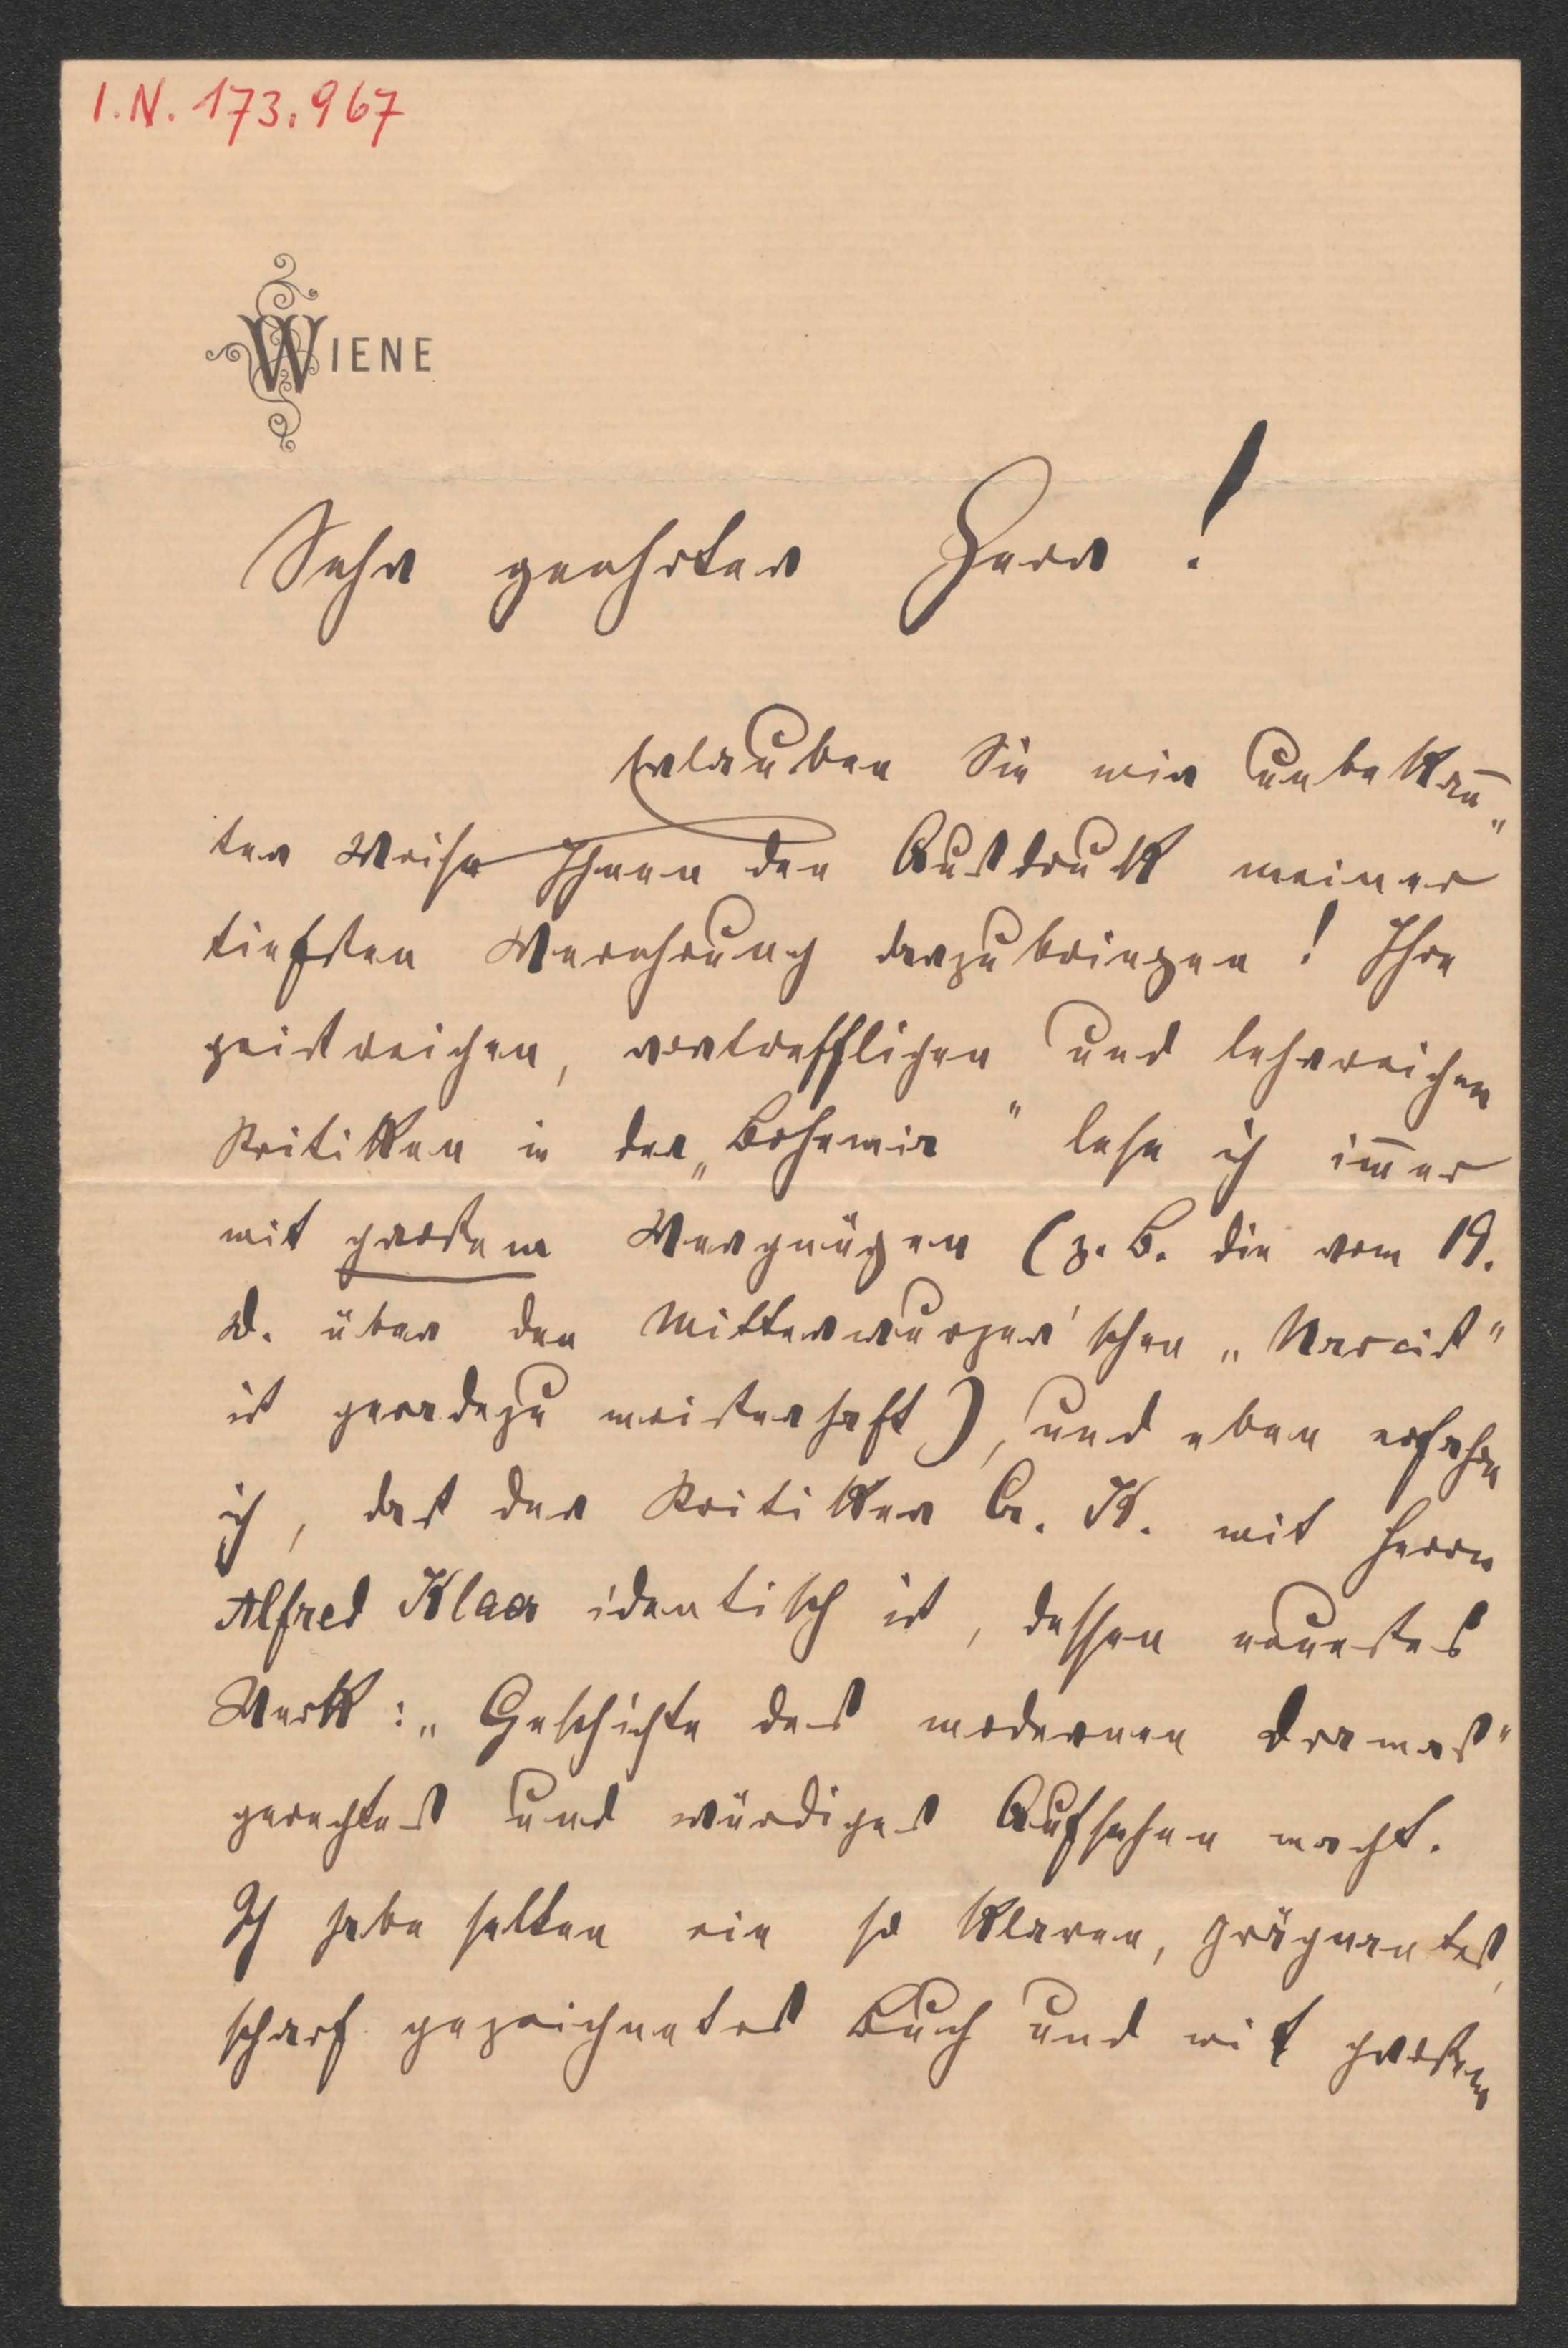 I.N. 173.967
WIENE
Sehr geehrter Herr!
Erlauben Sie mir unbekan̄„
ter Weise Ihnen den Ausdruck meiner
tiefsten Verehrung darzubringen! Ihre
geistreichen, vortrefflichen und lehrreichen
Kritikken in der „Bohemia" lese ich im̄er
mit großem Vergnügen (z. B. die vom 19.
d. über den Mitterwurzer'schen „Narciß"
ist geradezu meisterhaft), und eben erfahre
ich, daß der Kritikker A. K. mit Herrn
Alfred Klaar identisch ist, dessen neuestes
Werk: „Geschichte des modernen Dramas"
gerechtes und würdiges Aufsehen macht.
Ich habe selten ein so klares, prägnantes,
scharf gezeichnetes Buch und mit großem